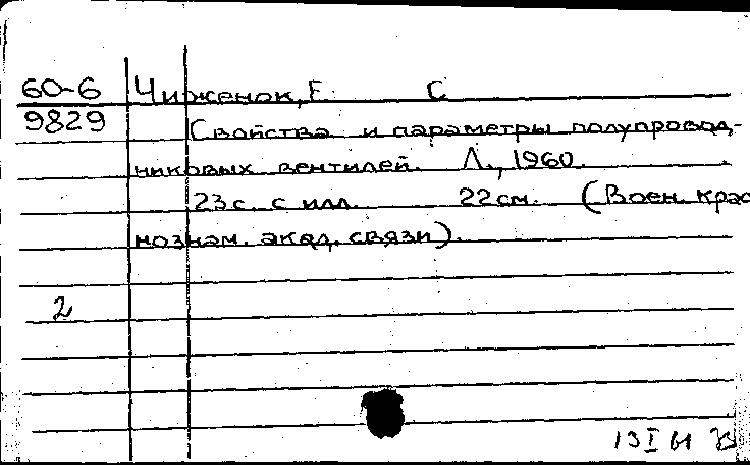 60-6 Чиженок, Е. С
9829 Свойства и параметры полупровод-
никовых вентилей. Л., 1960.
23 с. с илл. 22 см. (Воен. крас
нознам. акад. связи).
2
13 I 61